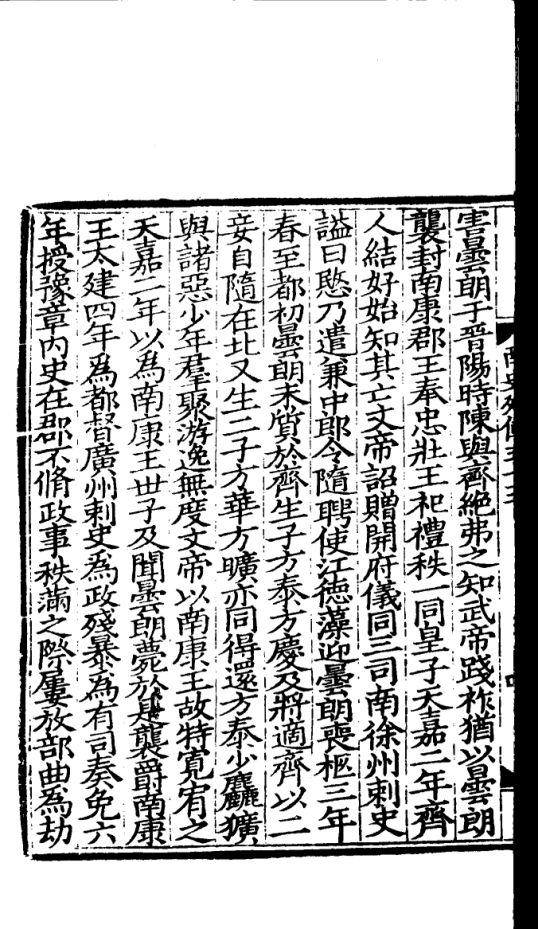 害曇朗于晉陽時陳與齊絕弗之知武帝踐祚猶以曇朗
襲封南康郡王奉忠壯王祀禮秩一同皇子天嘉二年齊
人結好始知其亡文帝詔贈開府儀同三司南徐州刺史
謚曰愍乃遣兼中郎令隨聘使江德藻迎曇朗喪柩三年
春至都初曇朗未質於齊生子方泰方慶及將適齊以二
妾自隨在北又生二子方華方曠亦同得還方泰少麤獷
與諸惡少年羣聚游逸無度文帝以南康王故特寬宥之
天嘉二年以為南康王世子及聞曇朗薨於是襲爵南康
王太建四年為都督廣州刺史為政殘暴為有司奏免六
年授豫章內史在郡不脩政事秩滿之際屢放部曲為劫